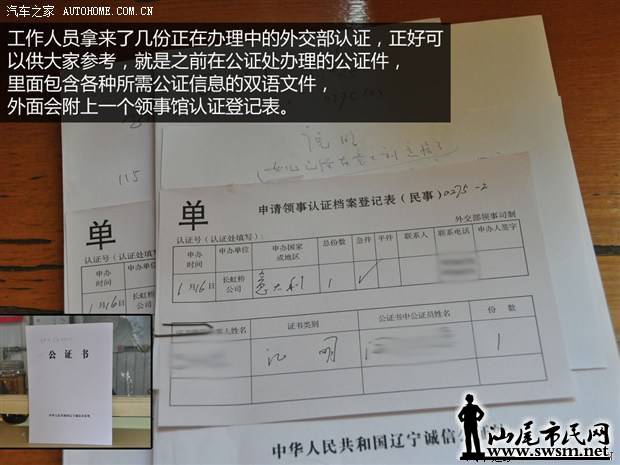 汽车之家 AUTOHOME.COM.CN
工作人员拿来了几份正在办理中的外交部认证，正好可
以供大家参考，就是之前在公证处办理的公证件，
里面包含各种所需公证信息的双语文件，
外面会附上一个领事馆认证登记表。
说明
115
单
申请领事认证档案登记表（民事）0275-2
认证号（认证处填写）：
外交部领事司制
申办时间 申办单位 申办国家或地区 总份数 急件 平件 联系人 联系电话 申办人签字
1月16日 长虹桥公司 意大利 1 ✓
人姓名 证书类别 公证书中公证员姓名 份数
证明 1
单
认证号（认证处填写
申办时间 申办单位
1月16日 长虹桥公司
公证书
中华人民共和国辽宁诚信公
汕尾市民网
www.swsm.net